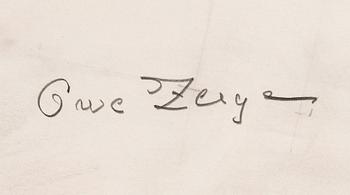 Owe Zerge